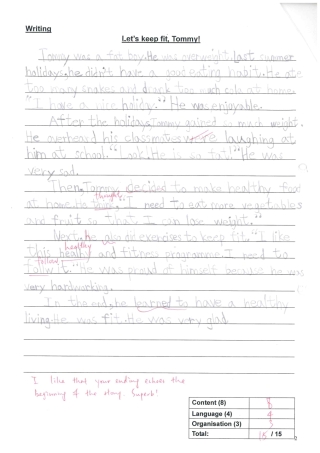 Writing
Let's keep fit, Tommy!
Tommy was a fat boy. He was overweight. Last summer
holidays, he didn't have a good eating habit. He ate
too many snakes and drank too much cola at home.
"I have a nice holiday." He was enjoyable.
After the holidays, Tommy gained so much weight.
He overheard his classmates were laughing at
him at school. "Look. He is so fat." He was
very sad.
Then, Tommy decided to make healthy food
thought
at home. He "I need to eat more vegetables
and fruit so that I can lose weight."
Next, he also did exercises to keep fit. "I like
healthy
this and fitness programme. I need to
follow
it." He was proud of himself because he was
very hardworking.
In the end, he learned to have a healthy
living. He was fit. He was very glad.
I like that your ending echoes the
beginning of the story. Superb!
Content (8) 8
Language (4) 4
Organisation (3) 3
Total: 15 / 15